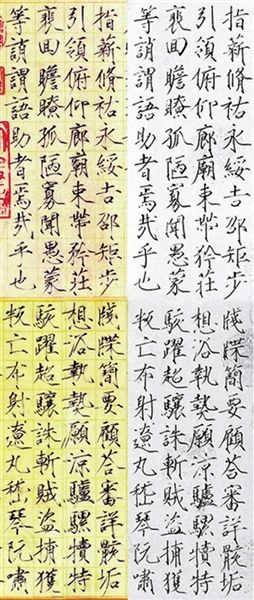 指薪脩祜永綏吉邵矩步
引領俯仰廊廟束帶矜莊
裵回瞻瞭孤陋寡聞愚蒙
等誚謂語助者焉哉乎也
指薪脩祜永綏吉邵矩步
引領俯仰廊廟束帶矜莊
裵回瞻瞭孤陋寡聞愚蒙
等誚謂語助者焉哉乎也
牋牒簡要顧荅審詳骸垢
想浴執熱願涼驢騾犢特
駭躍超驤誅斬賊盜捕獲
叛亡布射遼丸嵇琴阮嘯
牋牒簡要顧荅審詳骸垢
想浴執熱願涼驢騾犢特
駭躍超驤誅斬賊盜捕獲
叛亡布射遼丸嵇琴阮嘯